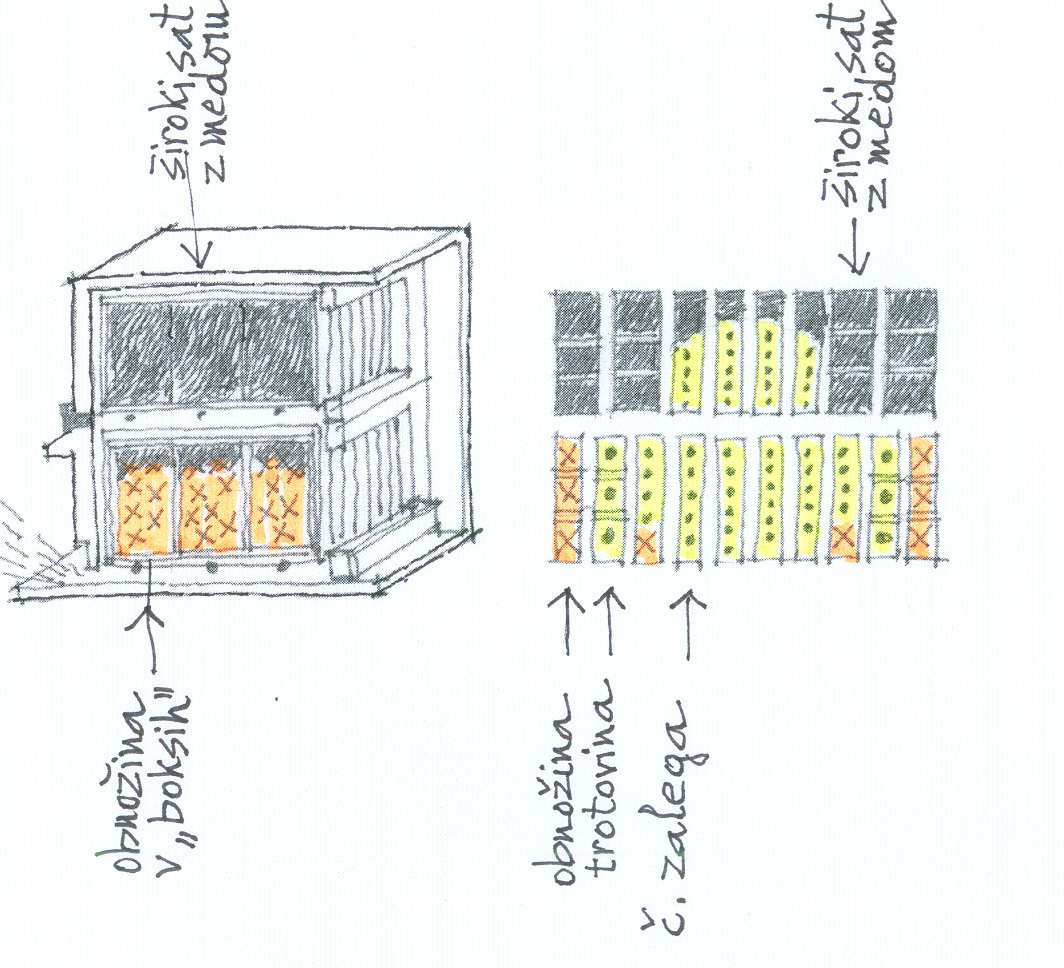 široki sat
z medom
široki, sat
z medom
obnožina
v „boksih"
obnožina
trotovina
č. zalega